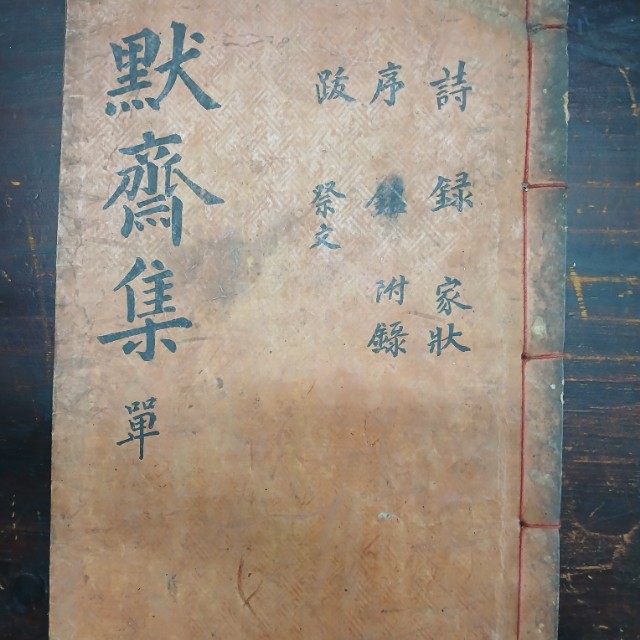 詩 録 家狀
序 附錄
跋 祭文
默齋集 單